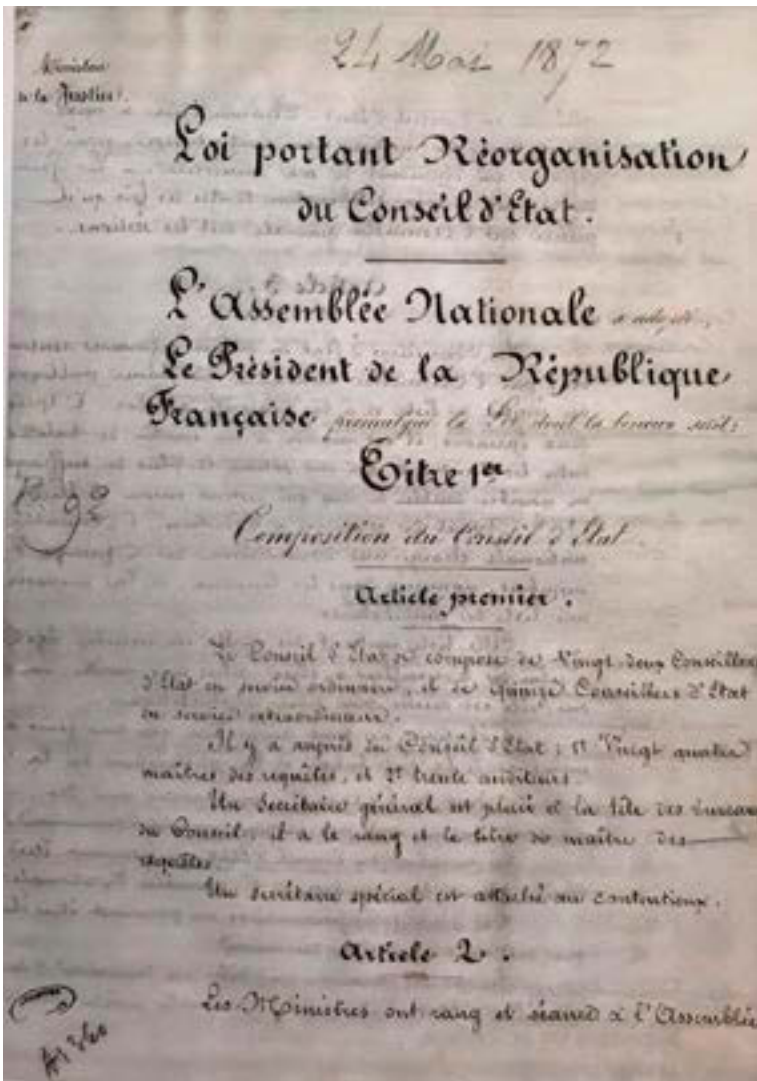 24 Mai 1872
Ministère
de la Justice.
Loi portant Réorganisation
du Conseil d'État.
L'Assemblée Nationale a adopté,
Le Président de la République
Française promulgue la Loi dont la teneur suit:
Titre 1er
Composition du Conseil d'État.
Article premier.
Le Conseil d'État se compose de Vingt-deux Conseillers
d'État en service ordinaire, et de quinze Conseillers d'État
en service extraordinaire.
Il y a auprès du Conseil d'État: 1° Vingt quatre
maîtres des requêtes, et 2° trente auditeurs.
Un Secrétaire général est placé à la tête des bureaux
du Conseil; il a le rang et le titre de maître des
requêtes.
Un secrétaire spécial est attaché au contentieux.
Article 2.
Les Ministres ont rang et séance à l'Assemblée